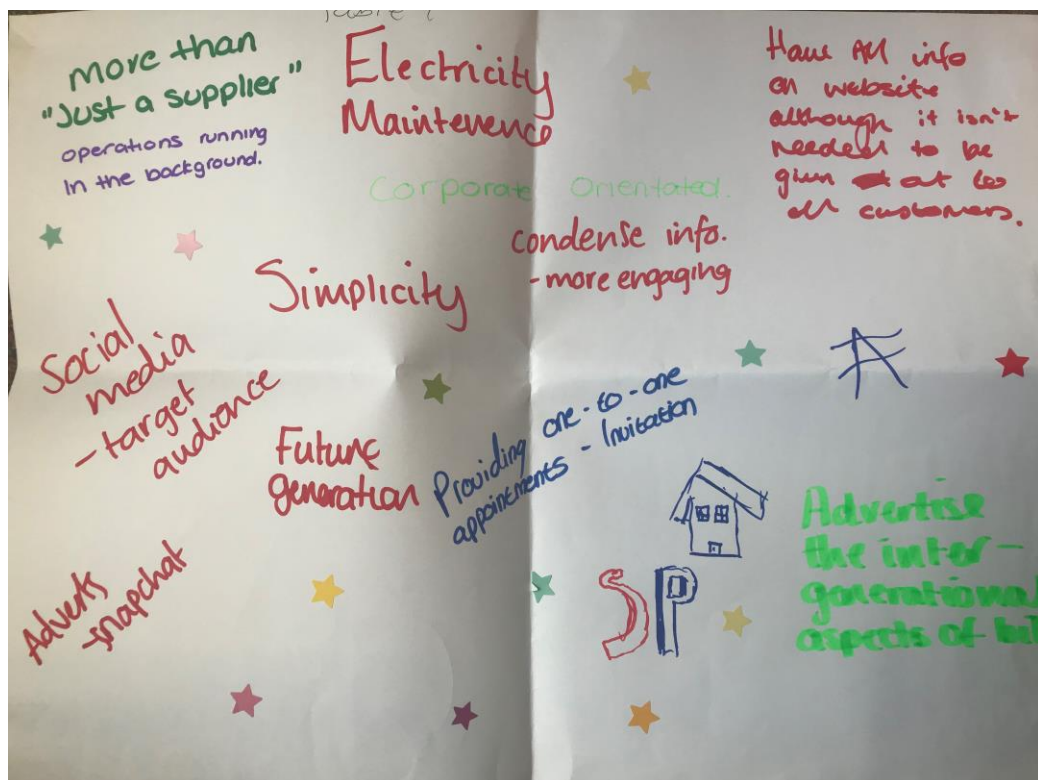 more than
"Just a supplier"
operations running
In the background.
Electricity
Maintenence
Corporate Orientated.
Have All info
on website
although it isn't
needed to be
given out to
all customers.
condense info.
- more engaging
Simplicity
Social
media
- target
audience
Future
generation
Providing one-to-one
appointments - Invitation
Adverts
- snapchat
SP
Advertise
the inter-
generational
aspects of